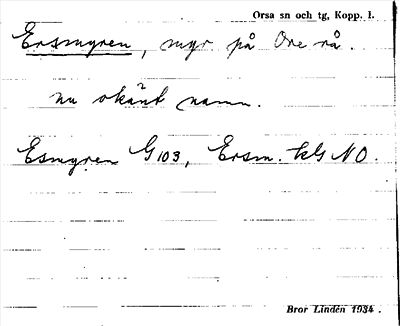 Orsa sn och tg, Kopp. l.
Ersmyren, myr på Ore rå.
nu okänt namn.
Esmyren G 103, Ersm. kls NO.
Bror Lindén 1934.